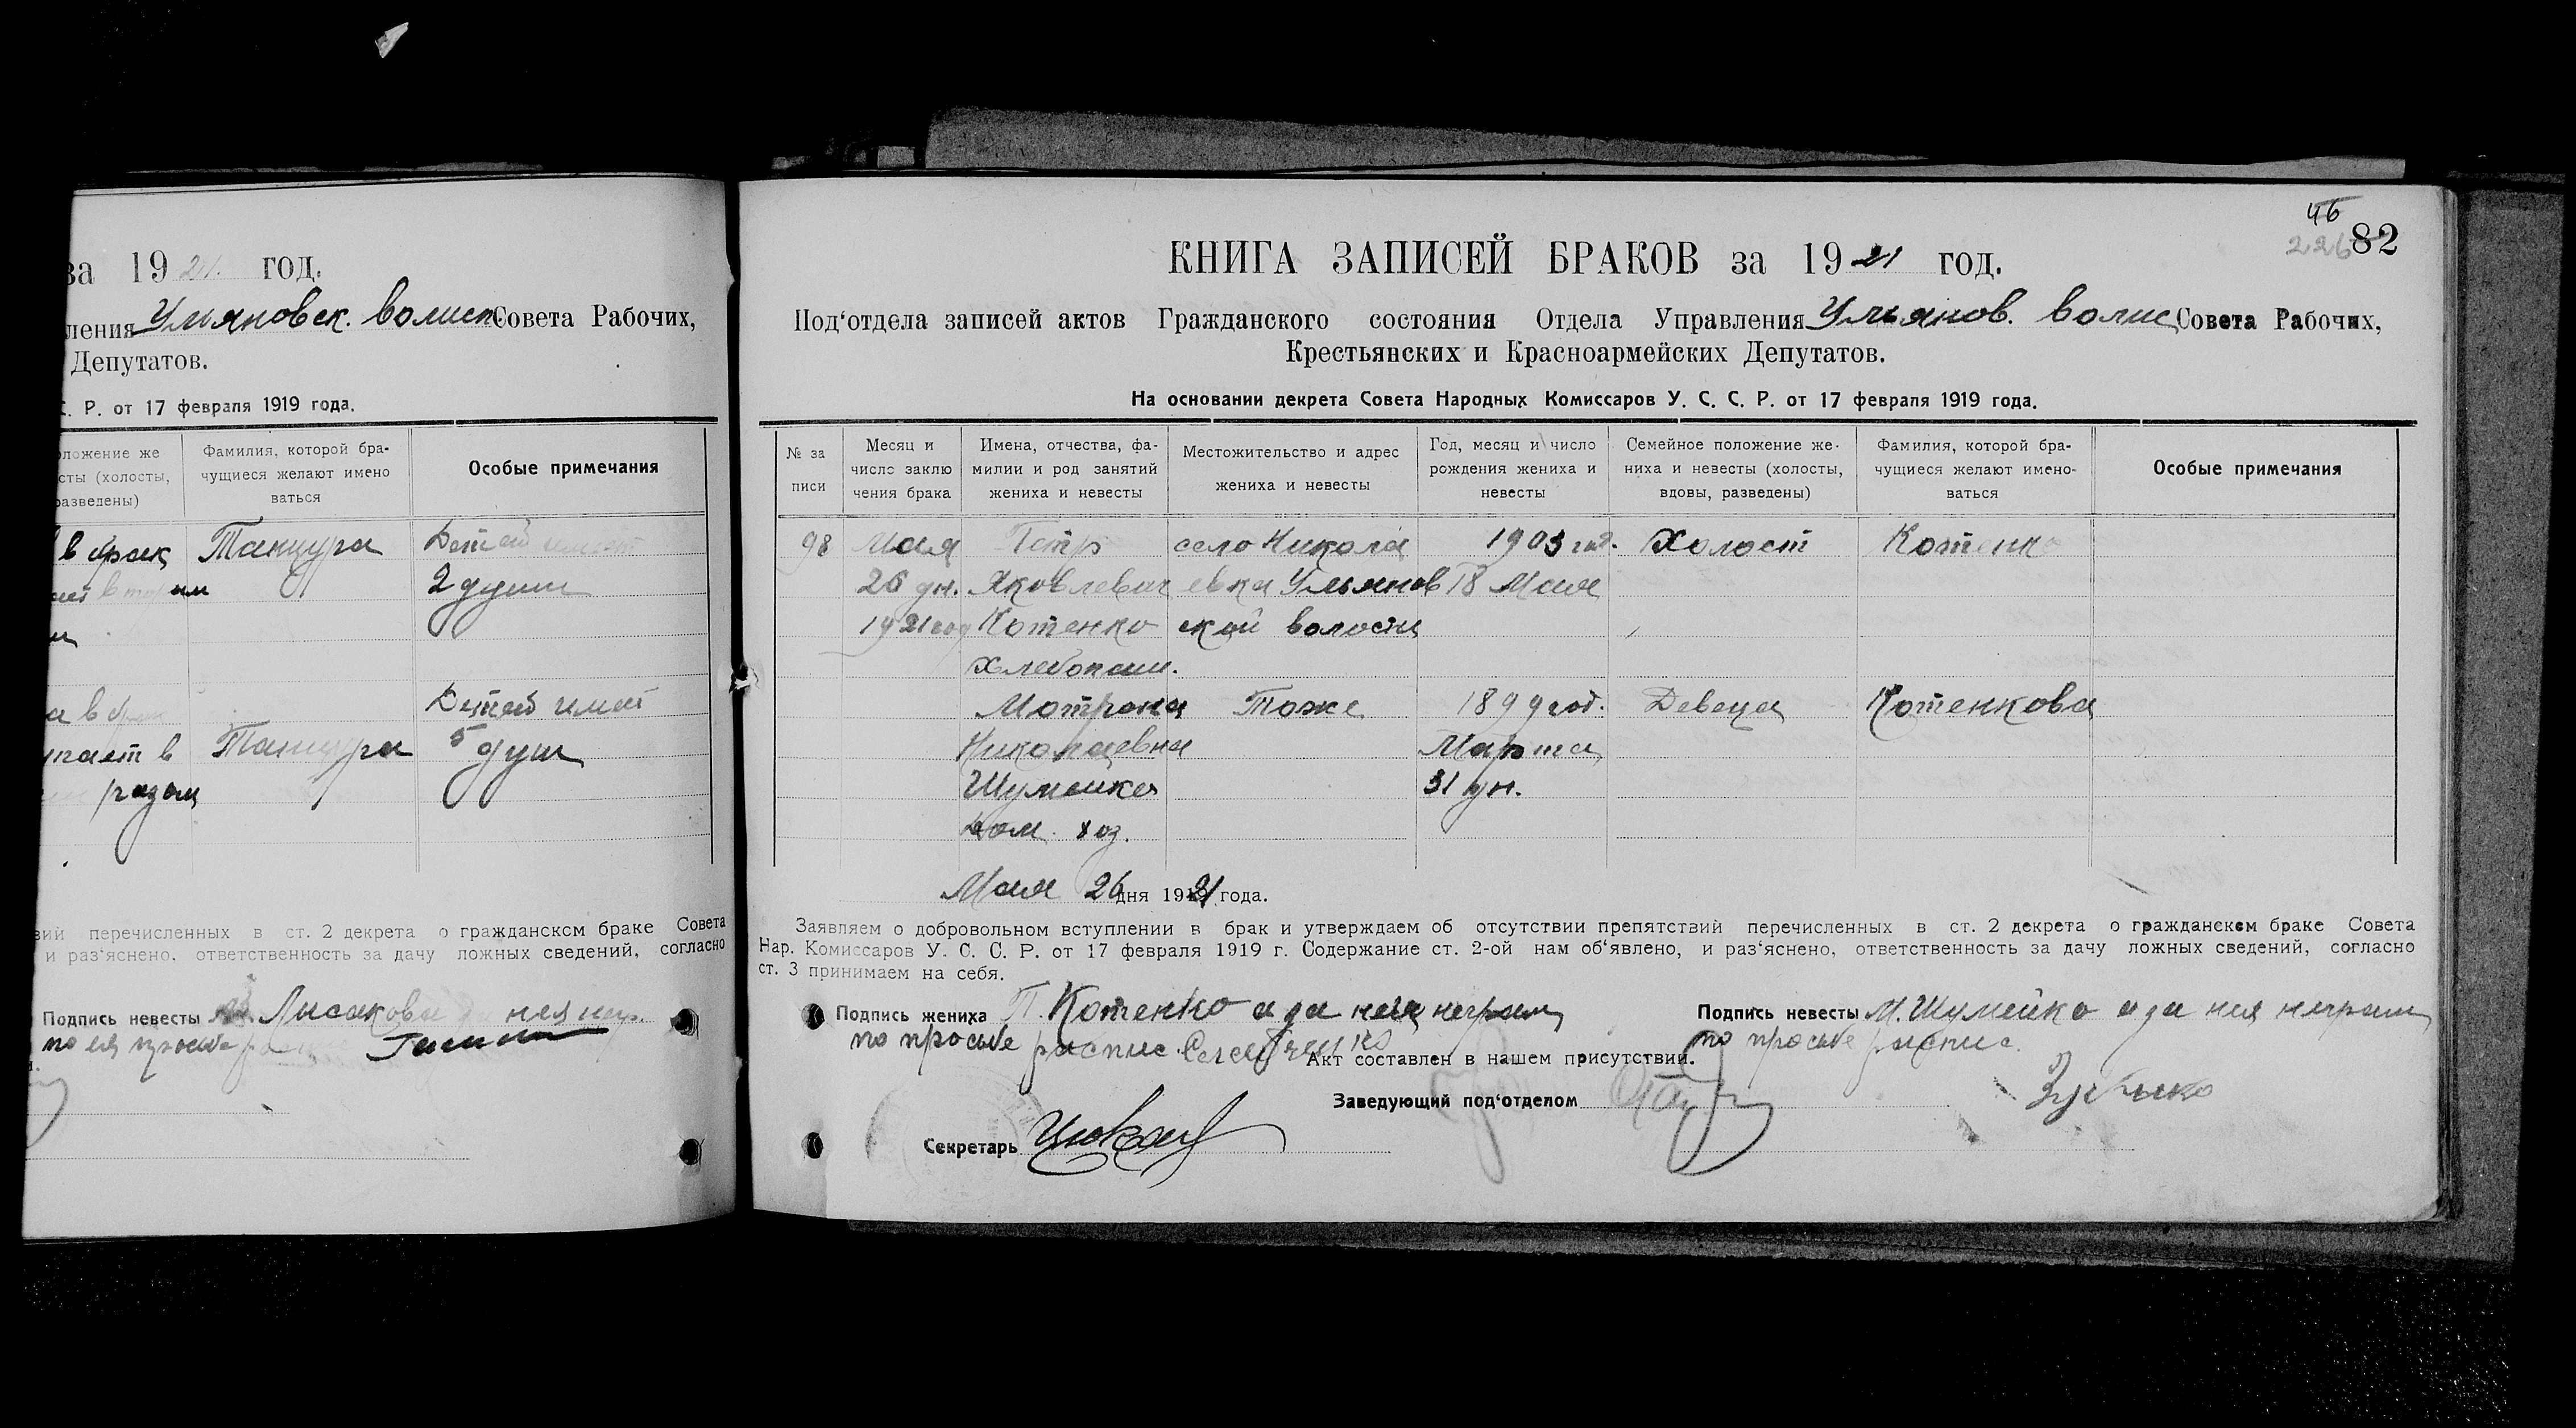 за 1921. год.
ления Ульяновск. волисп. Совета Рабочих,
Депутатов.
С. Р. от 17 февраля 1919 года.
оложение же
сты (холосты,
разведены)
Фамилия, которой бра-
чущиеся желают имено
ваться
Особые примечания
в брак Танцура Детей имеет
2 души
а в брак Детей имеет
упает в Танцура 5 душ
разом
вий перечисленных в ст. 2 декрета о гражданском браке Совета
и раз‘яснено, ответственность за дачу ложных сведений, согласно
Подпись невесты Лисакова
по ея просьбе
46
226 82
КНИГА ЗАПИСЕЙ БРАКОВ за 1921 год.
Под‘отдела записей актов Гражданского состояния Отдела Управления Ульянов. волис Совета Рабочих,
Крестьянских и Красноармейских Депутатов.
На основании декрета Совета Народных Комиссаров У. С. С. Р. от 17 февраля 1919 года.
№ за
писи
Месяц и
число заклю
чения брака
Имена, отчества, фа-
милии и род занятий
жениха и невесты
Местожительство и адрес
жениха и невесты
Год, месяц и число
рождения жениха и
невесты
Семейное положение же-
ниха и невесты (холосты,
вдовы, разведены)
Фамилия, которой бра-
чущиеся желают имено-
ваться
Особые примечания
98 Мая Петр село Никола 1903 год. Холост Котенко
26 дн. Яковлевич евка Ульянов 18 Мая
1921 год Котенко ской волости
Хлебопаш.
Мотрона Тоже 1899 год. Девеца Котенкова
Николаевна Марта
Шумейко 31 дн.
дом. хоз.
Мая 26 дня 1921 года.
Заявляем о добровольном вступлении в брак и утверждаем об отсутствии препятствий перечисленных в ст. 2 декрета о гражданском браке Совета
Нар. Комиссаров У. С. С. Р. от 17 февраля 1919 г. Содержание ст. 2-ой нам об‘явлено, и раз‘яснено, ответственность за дачу ложных сведений, согласно
ст. 3 принимаем на себя.
Подпись жениха П. Котенко а за нея неграм
по просьбе роспис.
Подпись невесты М. Шумейко а за нея неграм
по просьбе роспис.
Акт составлен в нашем присутствии.
Заведующий под‘отделом
Секретарь